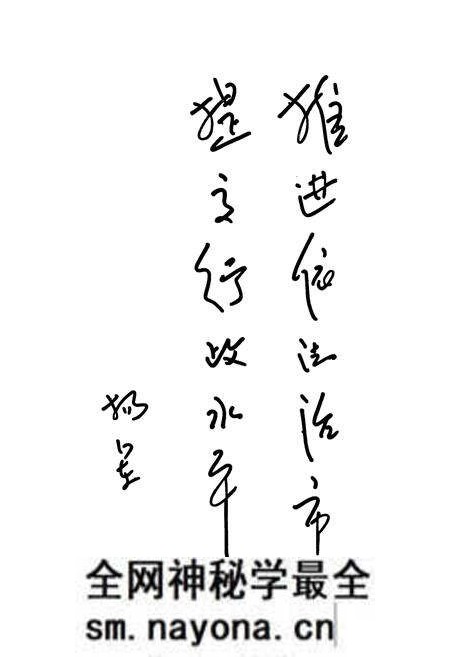 推进依法治市
提高行政水平
杨
全网神秘学最全
sm.nayona.cn